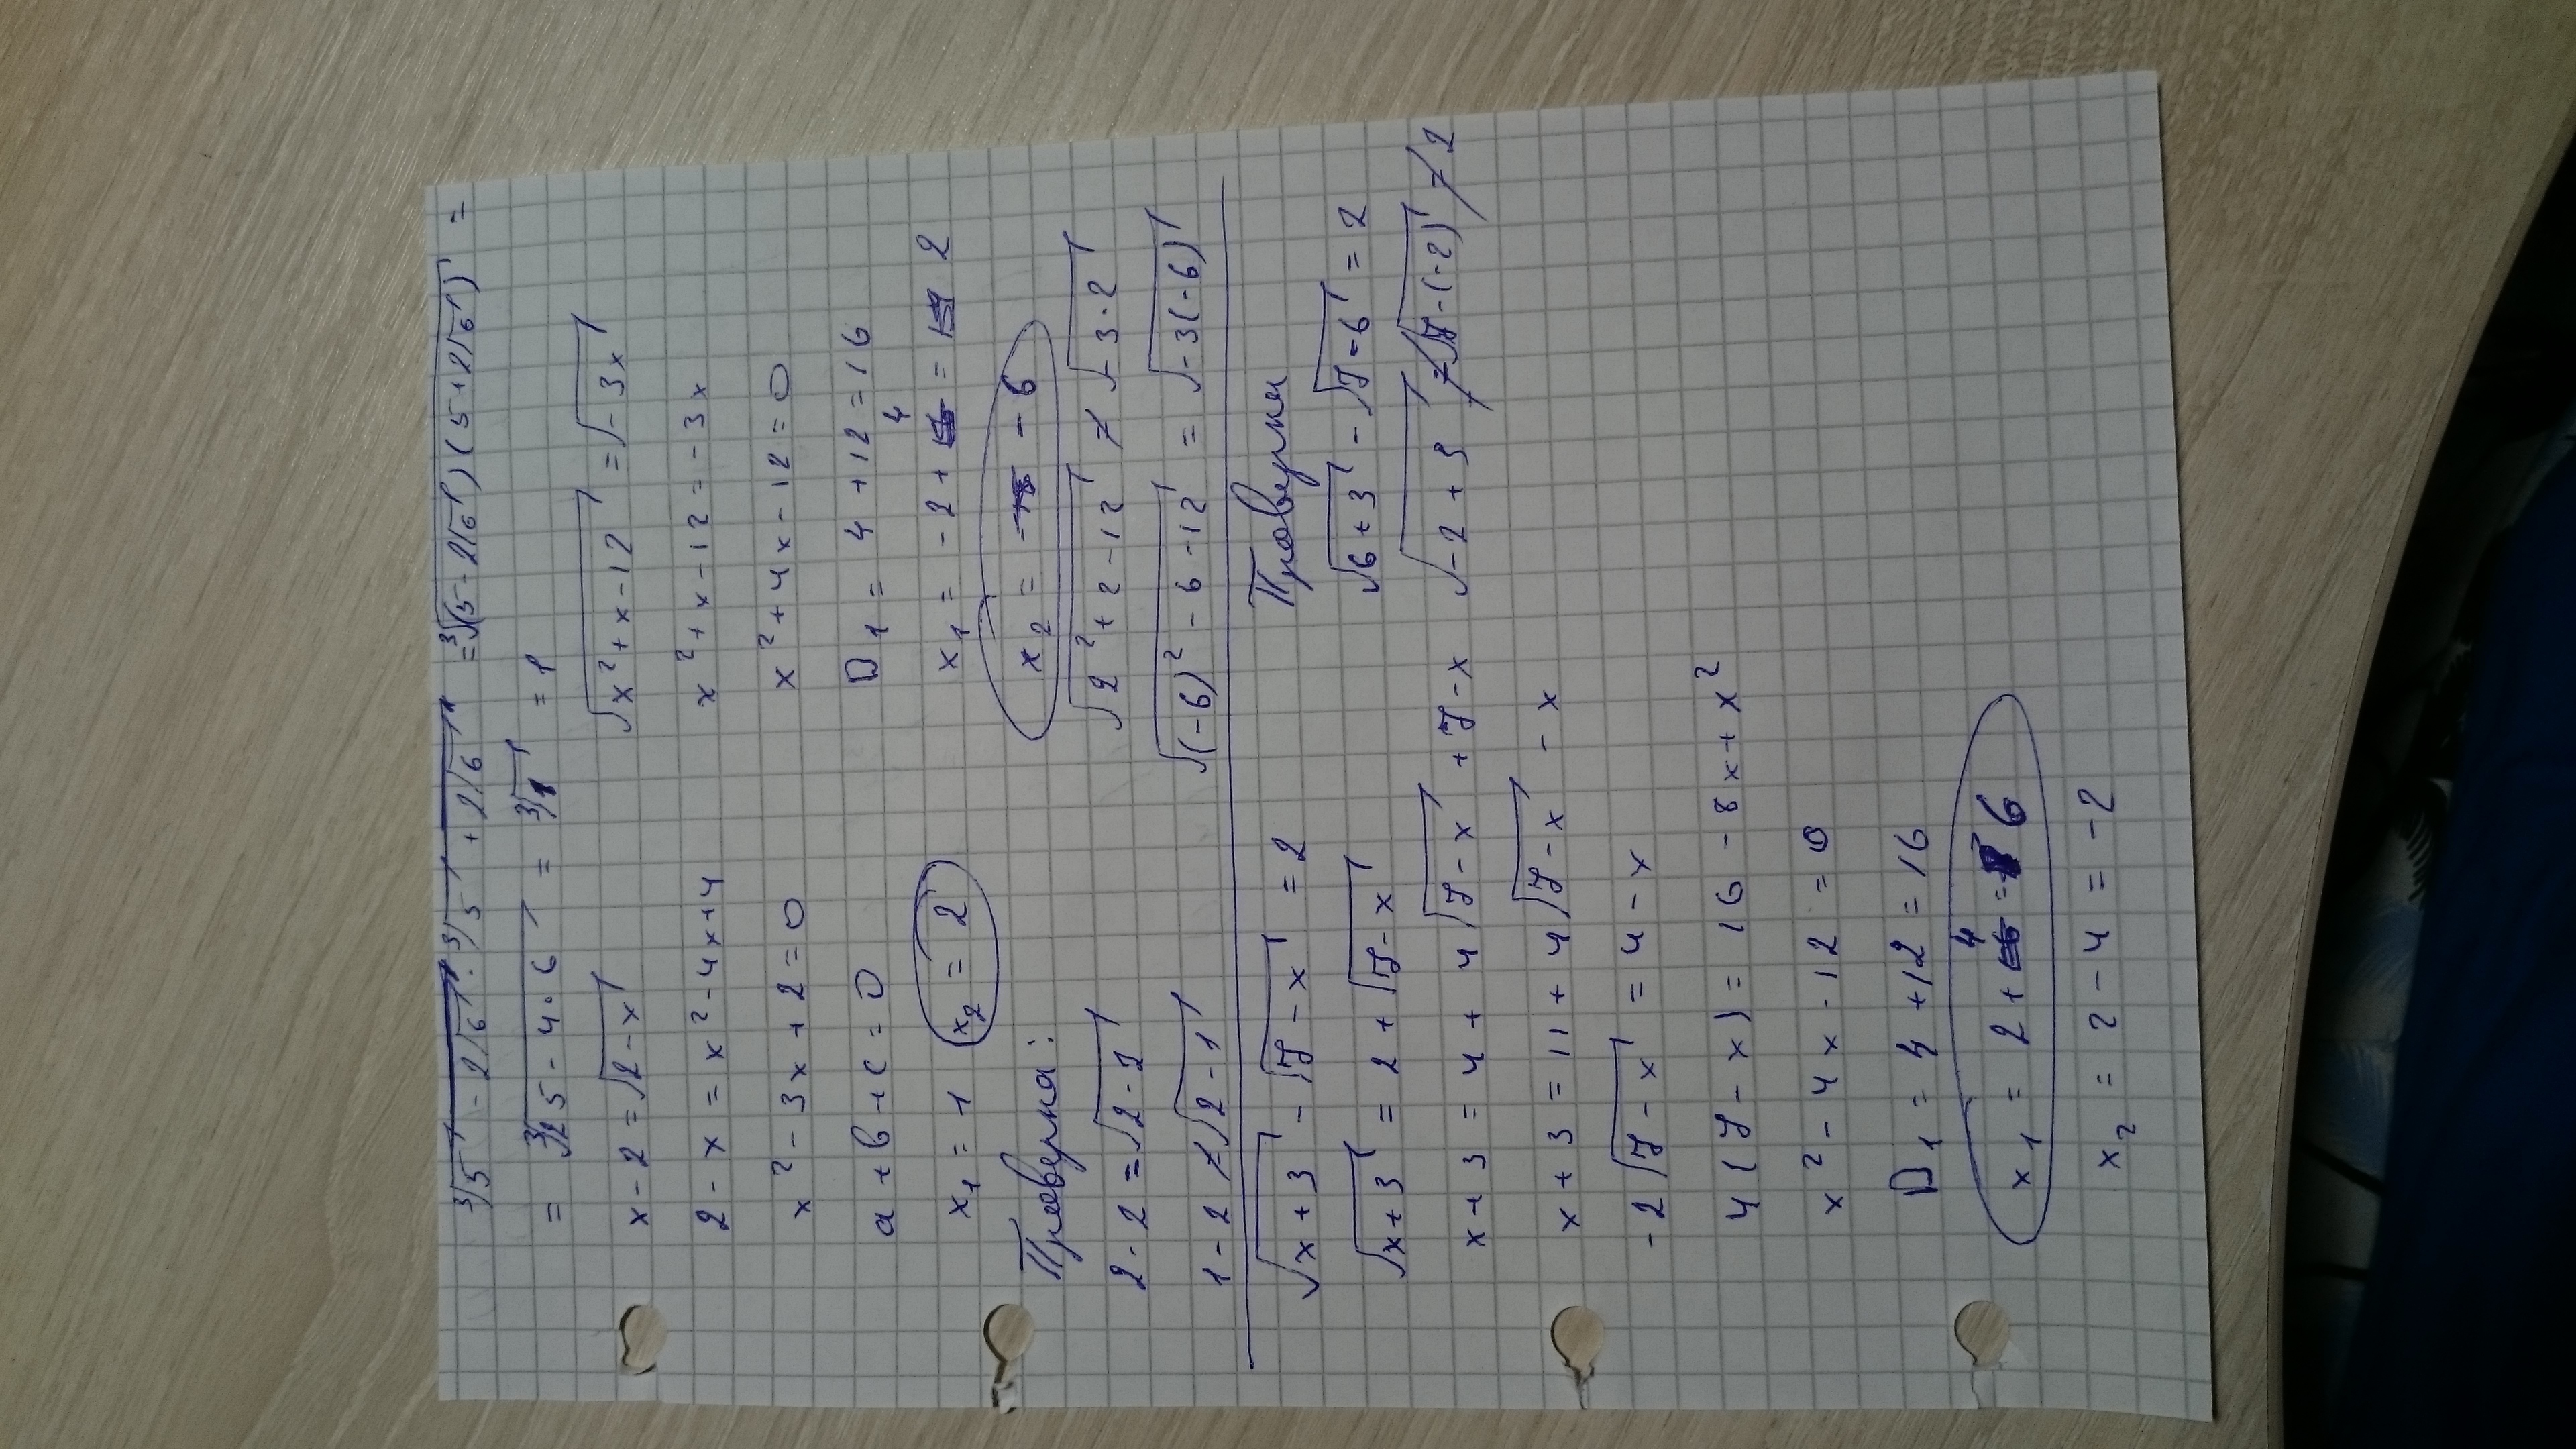 ∛5 - 2√6 · ∛5 + 2√6 = ∛(5 - 2√6)(5 + 2√6) =
= ∛25 - 4·6 = ∛1 = 1
x - 2 = √2 - x
2 - x = x² - 4x + 4
x² - 3x + 2 = 0
a + b + c = 0
x₁ = 1 x₂ = 2
Проверка:
2 - 2 = √2 - 2
1 - 2 ≠ √2 - 1
√x² + x - 12 = √-3x
x² + x - 12 = -3x
x² + 4x - 12 = 0
D₁ = 4 + 12 = 16
x₁ = -2 + 4 = 2
x₂ = -6
√2² + 2 - 12 ≠ √-3·2
√(-6)² - 6 - 12 = √-3(-6)
√x + 3 - √7 - x = 2
√x + 3 = 2 + √7 - x
x + 3 = 4 + 4√7 - x + 7 - x
x + 3 = 11 + 4√7 - x - x
-2√7 - x = 4 - x
4(7 - x) = 16 - 8x + x²
x² - 4x - 12 = 0
D₁ = 4 + 12 = 16
x₁ = 2 + 4 = 6
x₂ = 2 - 4 = -2
Проверка
√6 + 3 - √7 - 6 = 2
√-2 + 3 - √7 - (-2) ≠ 2